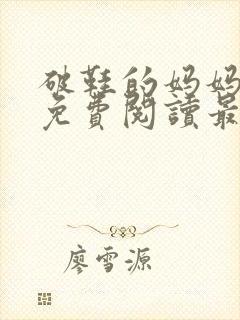 破鞋的妈妈
免費閱讀最
廖雪源